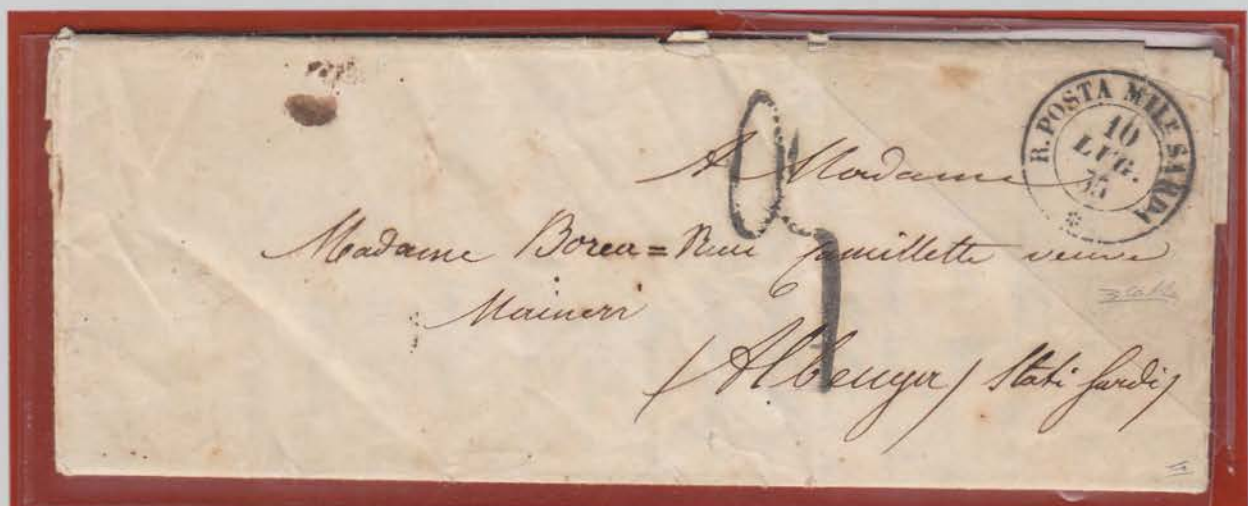 R. POSTA MILE SARDA
10
LUG.
55
A Madame
Madame Borea = Camillette veuve
Maineri
(Albenga) Stati Sardi